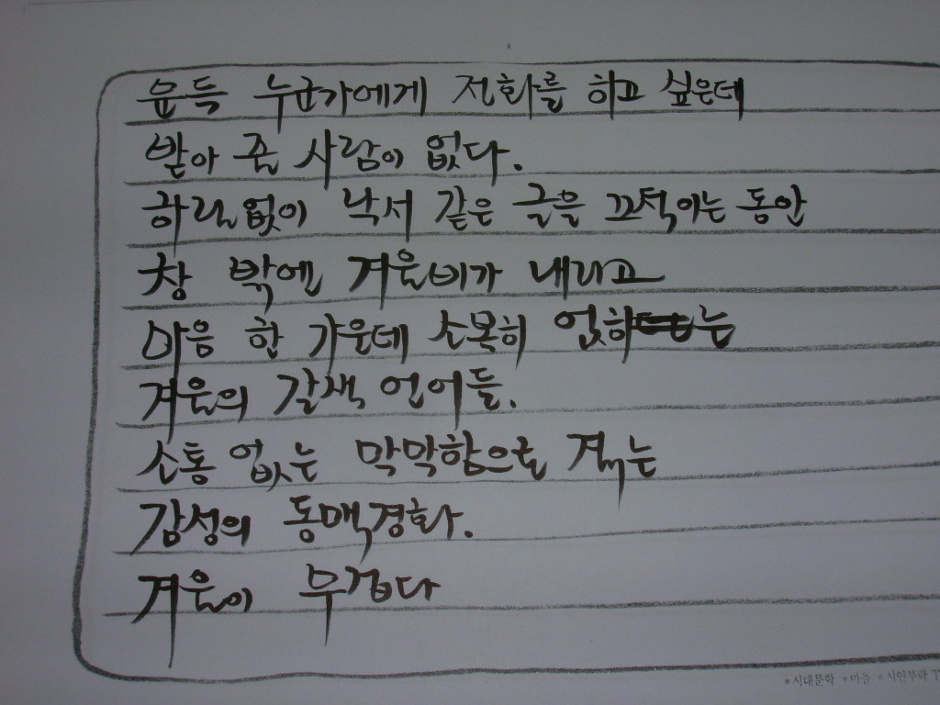 문득 누군가에게 전화를 하고 싶은데
받아 줄 사람이 없다.
하릴없이 낙서 같은 글을 끄적이는 동안
창 밖엔 겨울비가 내리고
마음 한 가운데 소복히
겨울의 갈색 언어들.
소통 없는 막막함으로 겪는
감성의 동맥경화.
겨울이 무겁다
*시대문학 *마음